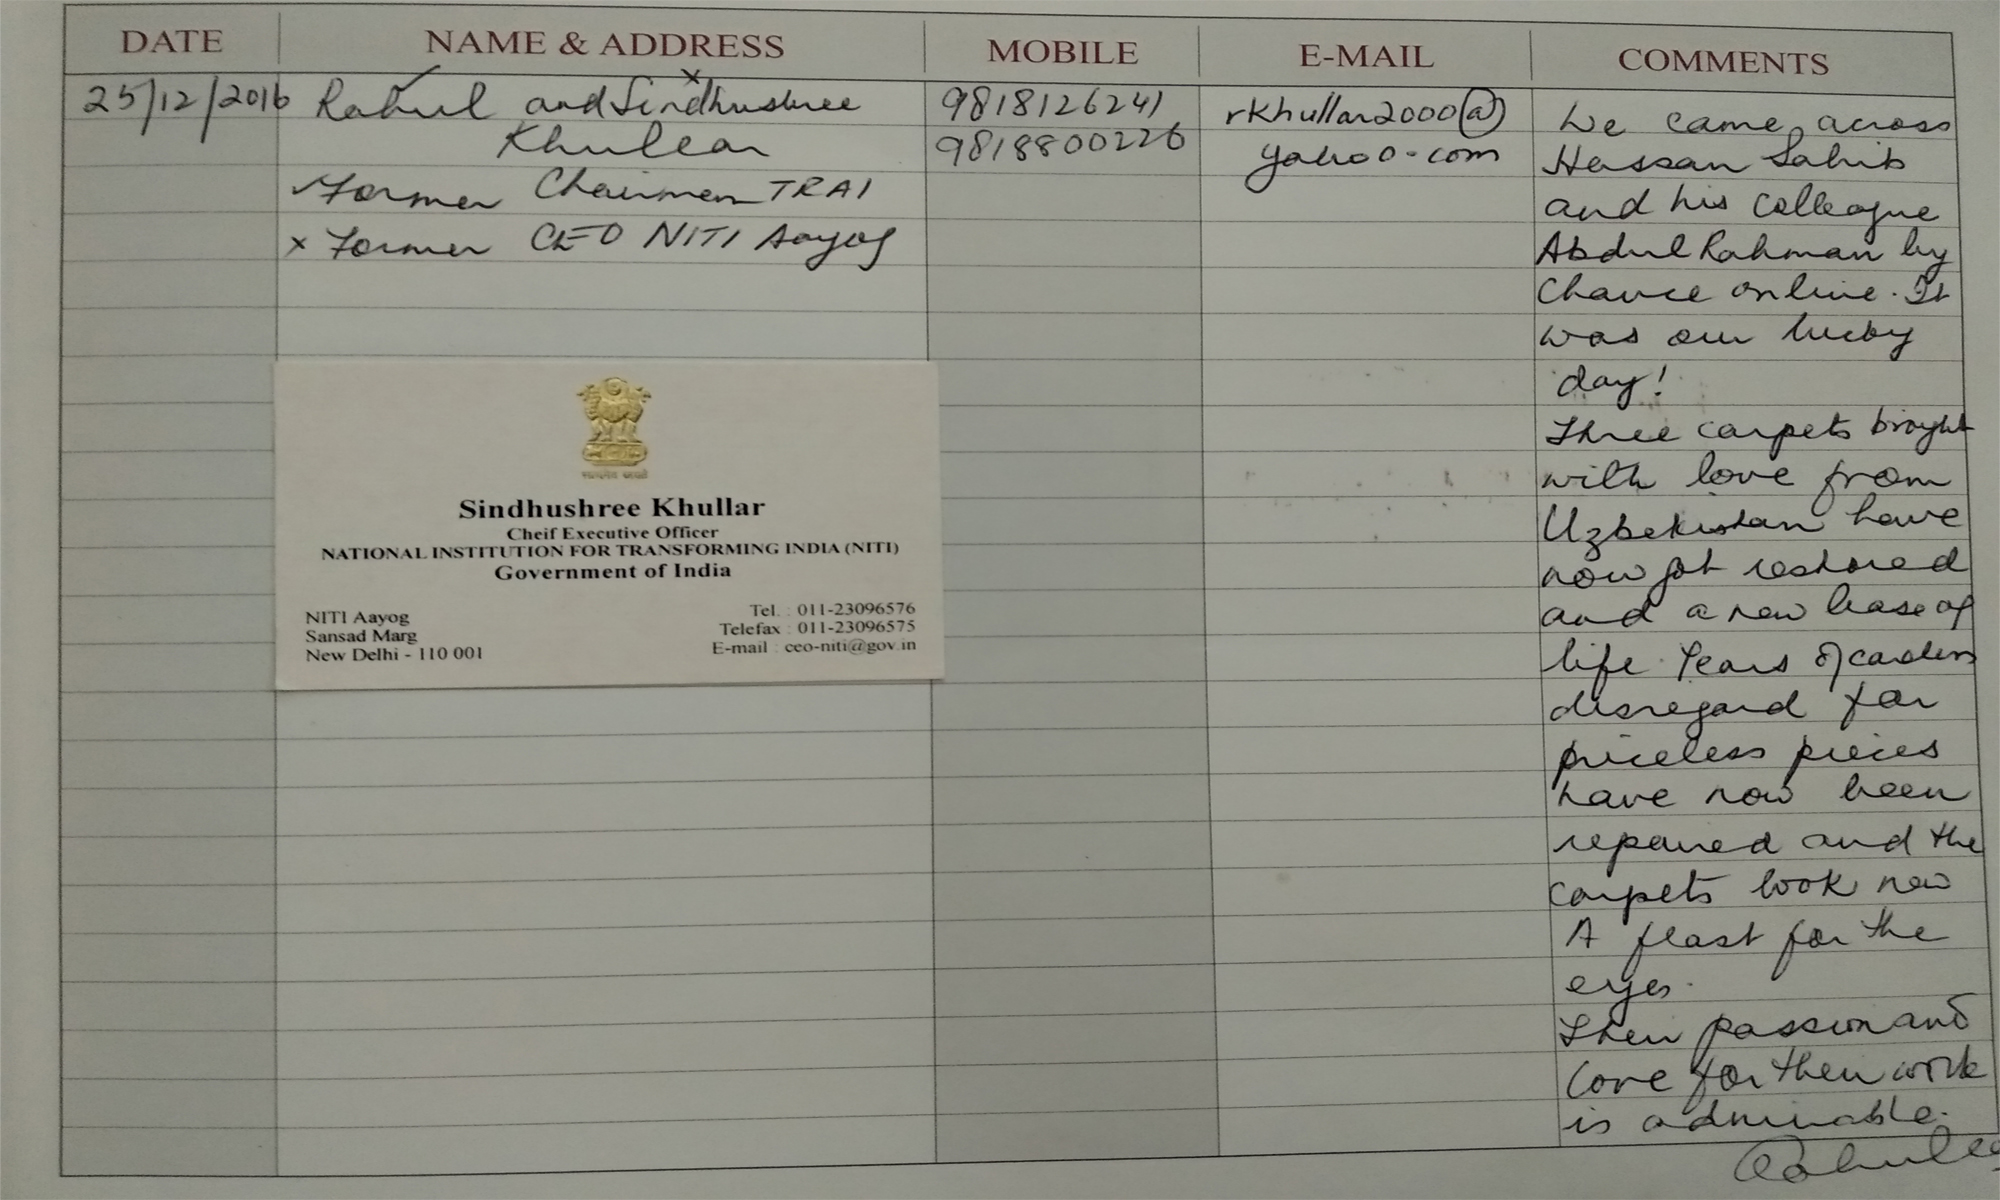 DATE NAME & ADDRESS MOBILE E-MAIL COMMENTS
25/12/2016
Rahul and Sindhushree
Khullar
✓ Former Chairman TRAI
x Former CEO NITI Aayog
9818126241
9818800226
rkhullar2000@
yahoo.com
We came across
Hassan Sahib
and his colleague
Abdul Rahman by
chance online. It
was our lucky
day!
Three carpets brought
with love from
Uzbekistan have
now got restored
and a new lease of
life. Years of careless
disregard for
priceless pieces
have now been
repaired and the
carpets look new
A feast for the
eyes.
Their passion and
love for their work
is admirable.
Sindhushree Khullar
Cheif Executive Officer
NATIONAL INSTITUTION FOR TRANSFORMING INDIA (NITI)
Government of India
NITI Aayog
Sansad Marg
New Delhi - 110 001
Tel. : 011-23096576
Telefax : 011-23096575
E-mail : ceo-niti@gov.in